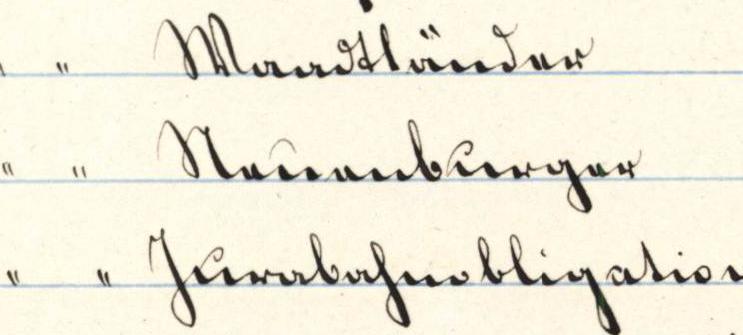 " " Waadtländer
" " Neuenburger
" " Jurabahnobligation